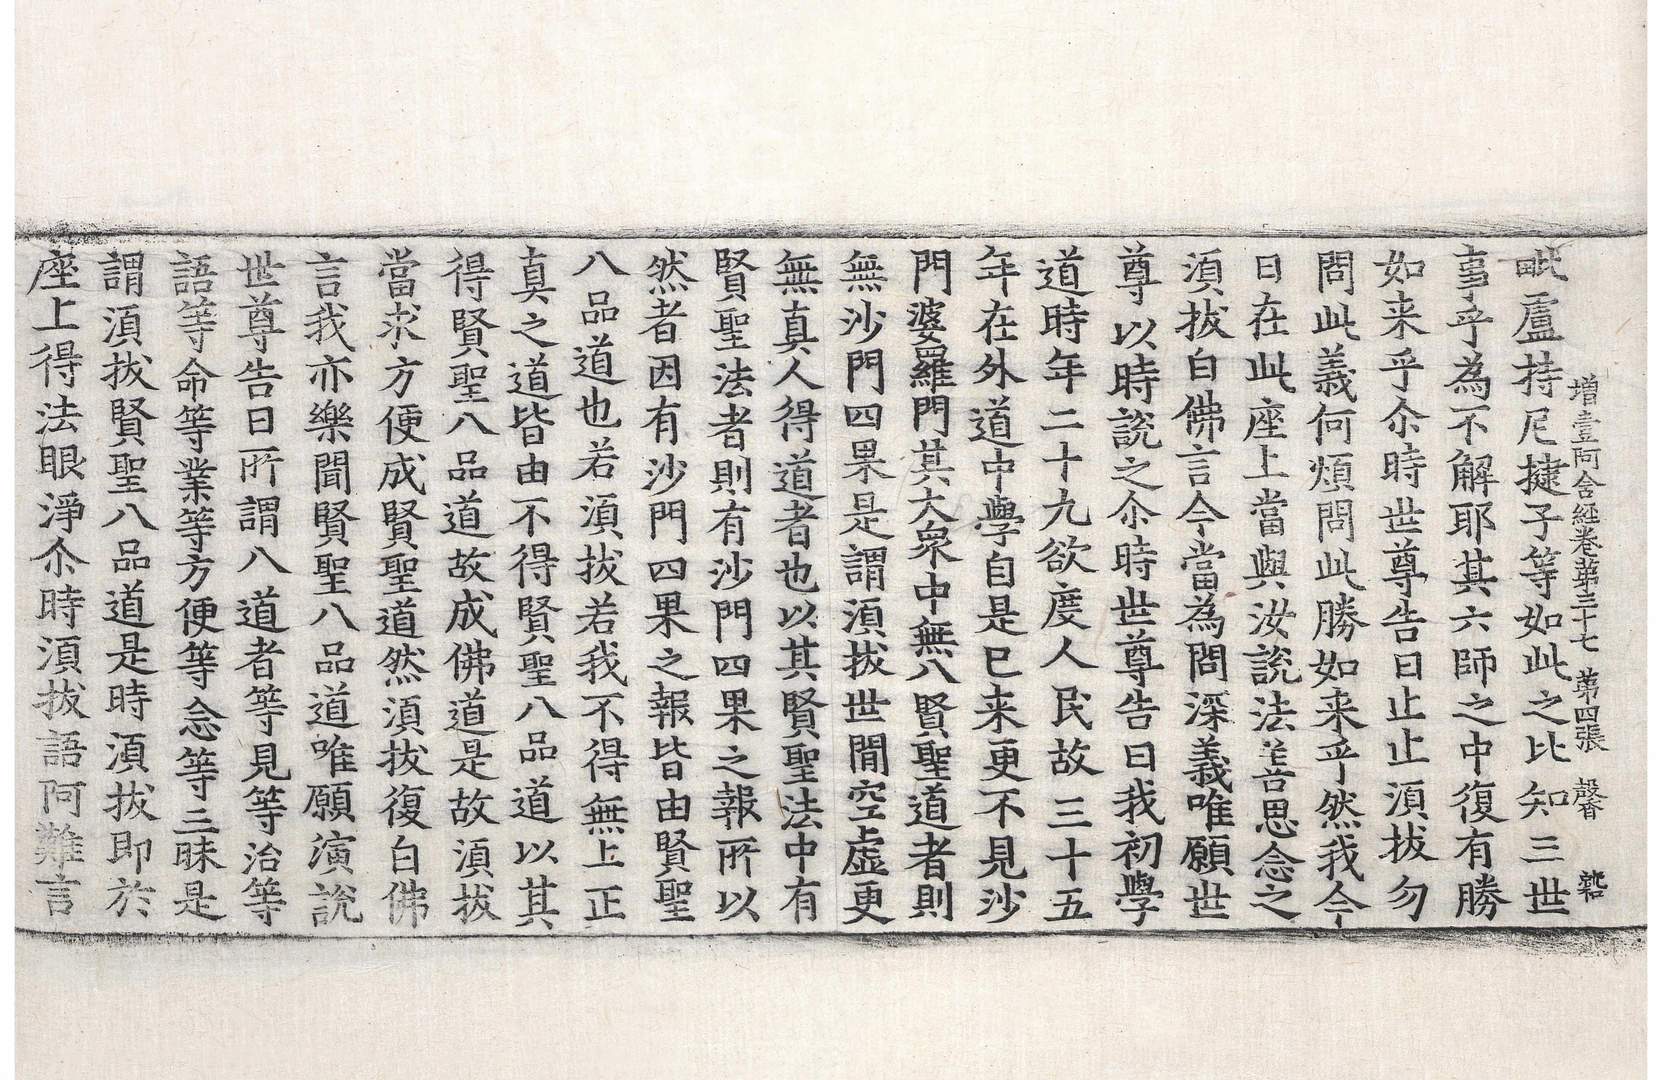 增壹阿含経卷第三十七 第四張 馨
毗盧持尼揵子等如此之比知三世
事乎為不解耶其六師之中復有勝
如来乎尒時世尊告曰止止湏拔勿
問此義何煩問此勝如来乎然我今
日在此座上當與汝說法善思念之
湏拔白佛言今當為問深義唯願世
尊以時說之尒時世尊告曰我初學
道時年二十九欲度人民故三十五
年在外道中學自是已来更不見沙
門婆羅門其大眾中無八賢聖道者則
無沙門四果是謂湏拔世間空虛更
無真人得道者也以其賢聖法中有
賢聖法者則有沙門四果之報所以
然者因有沙門四果之報皆由賢聖
八品道也若湏拔若我不得無上正
真之道皆由不得賢聖八品道以其
得賢聖八品道故成佛道是故湏拔
當求方便成賢聖道然湏拔復白佛
言我亦樂聞賢聖八品道唯願演說
世尊告曰所謂八道者等見等治等
語等命等業等方便等念等三昧是
謂湏拔賢聖八品道是時湏拔即於
座上得法眼淨尒時湏拔語阿難言